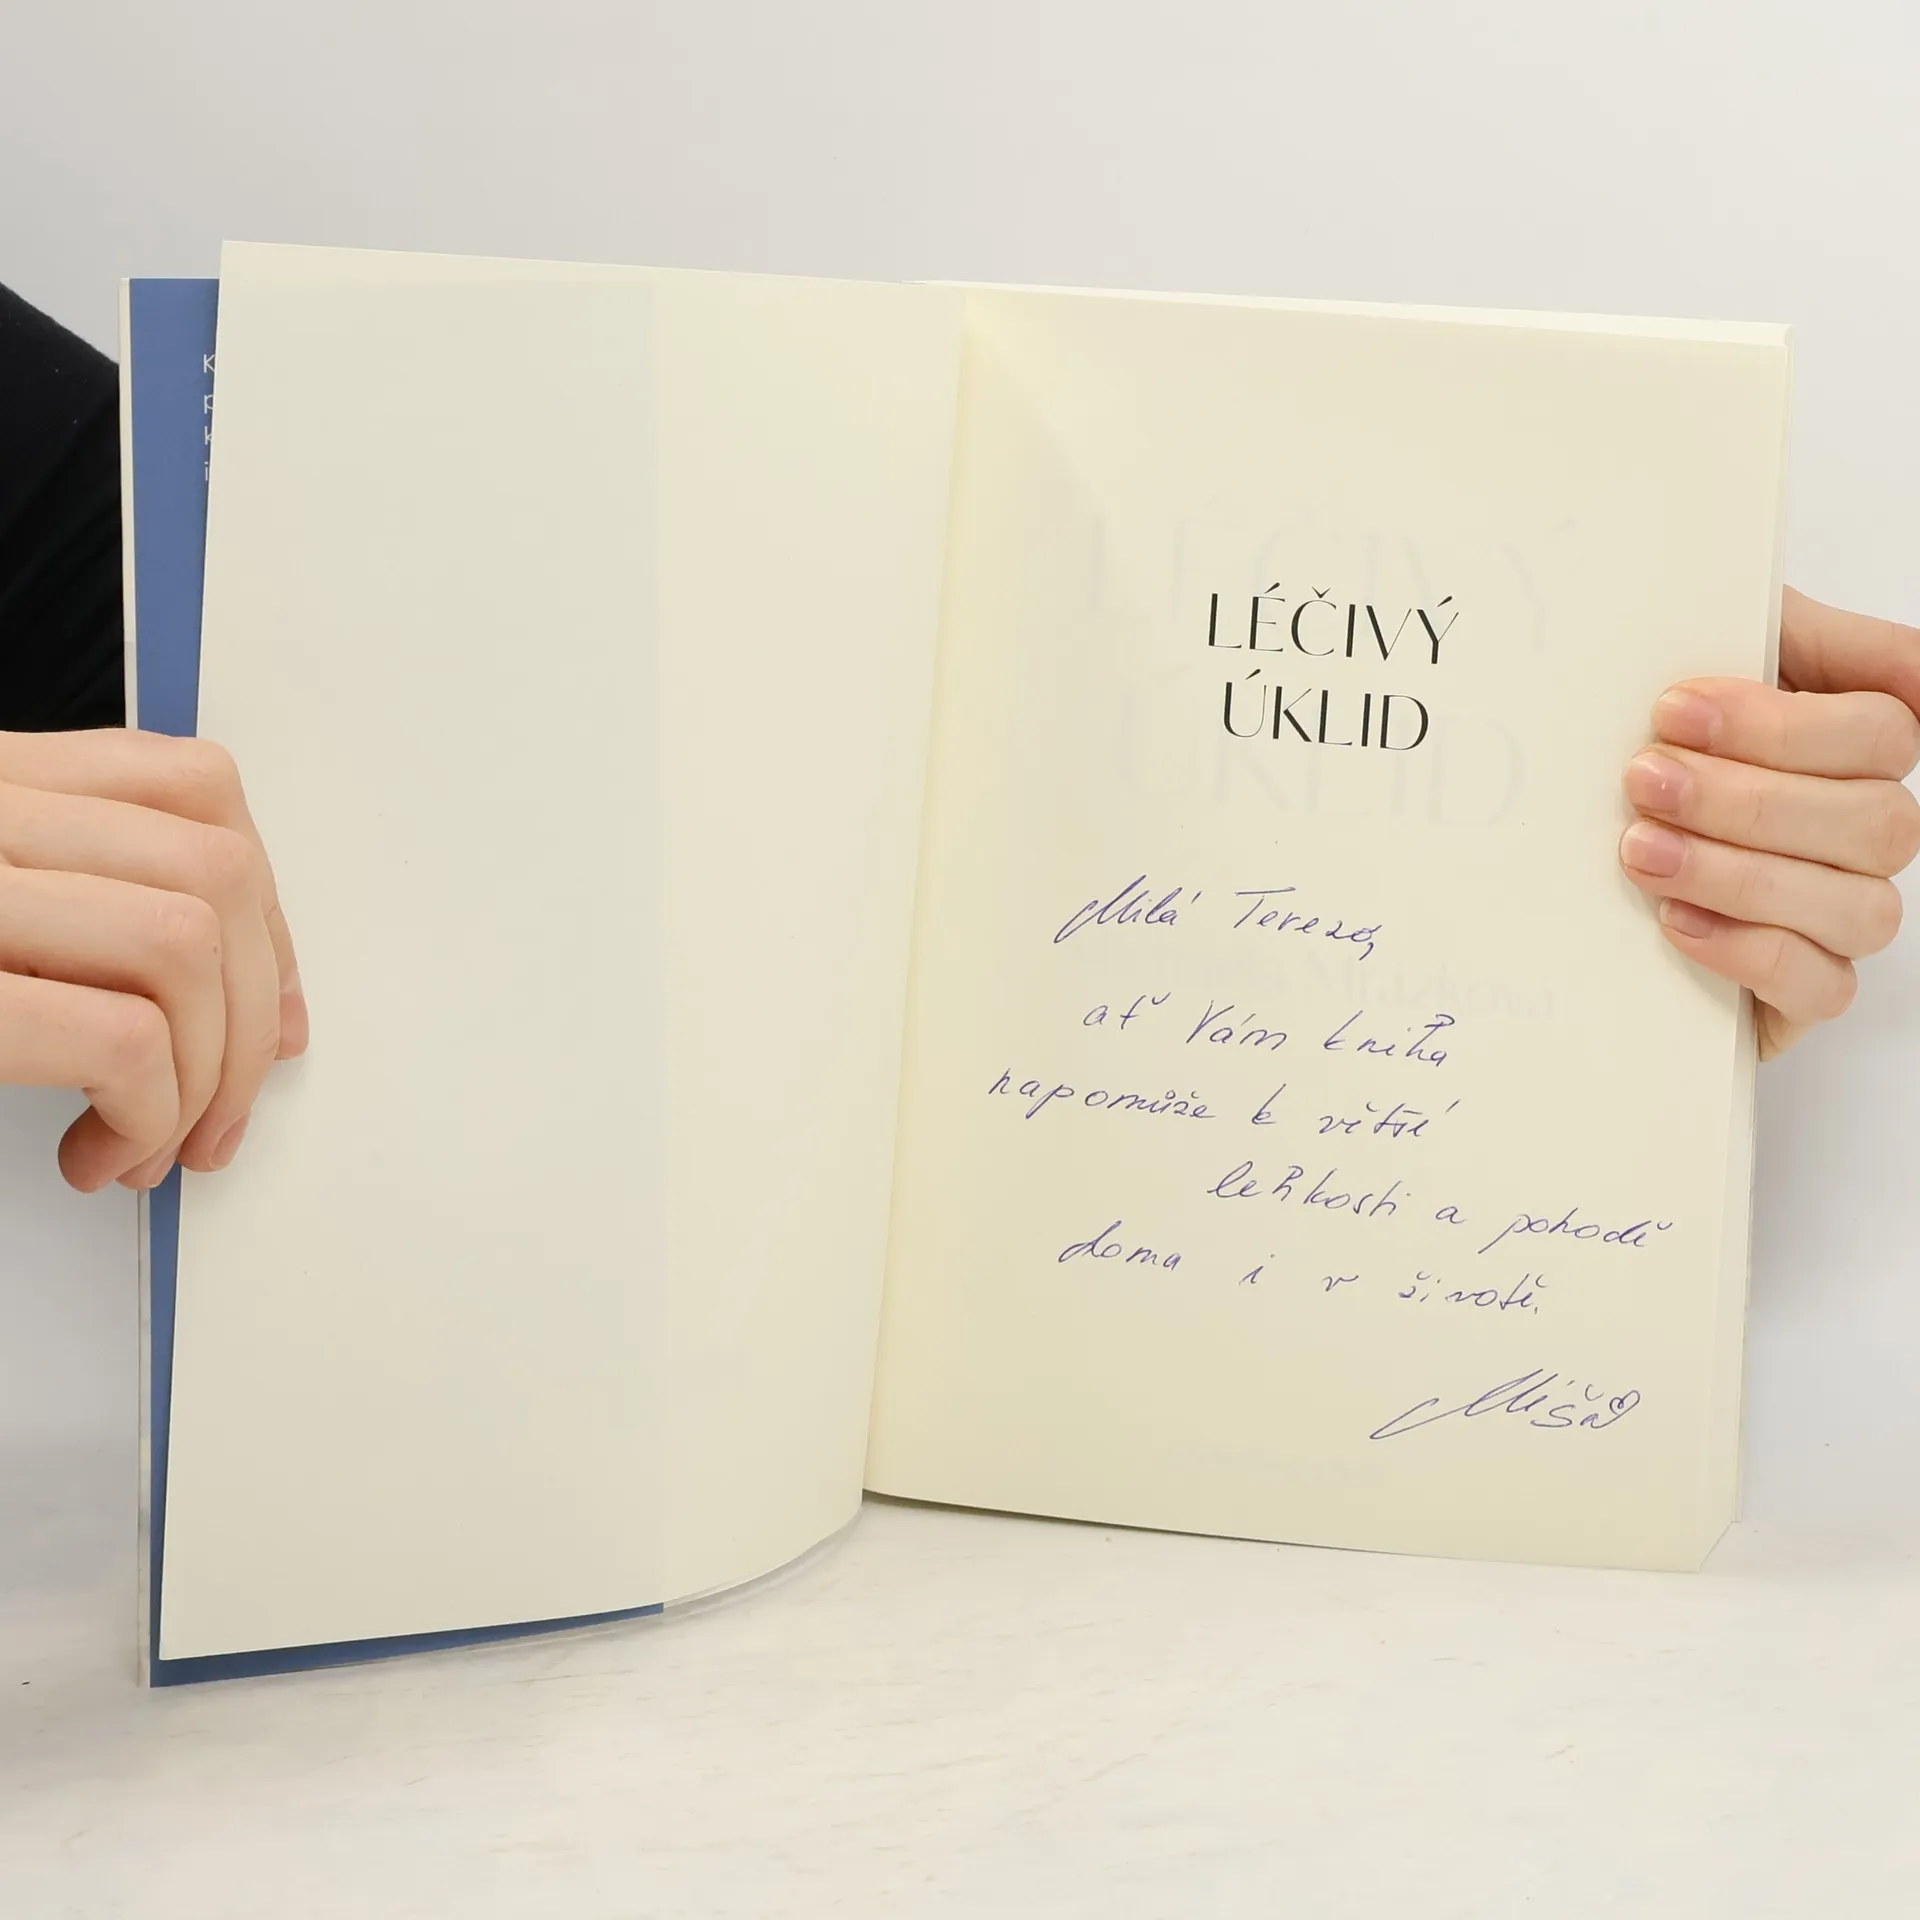 K
p
k
i
LÉČIVÝ
ÚKLID
Milá Terezo,
ať Vám kniha
napomůže k větší
lehkosti a pohodě
doma i v životě.
Míša